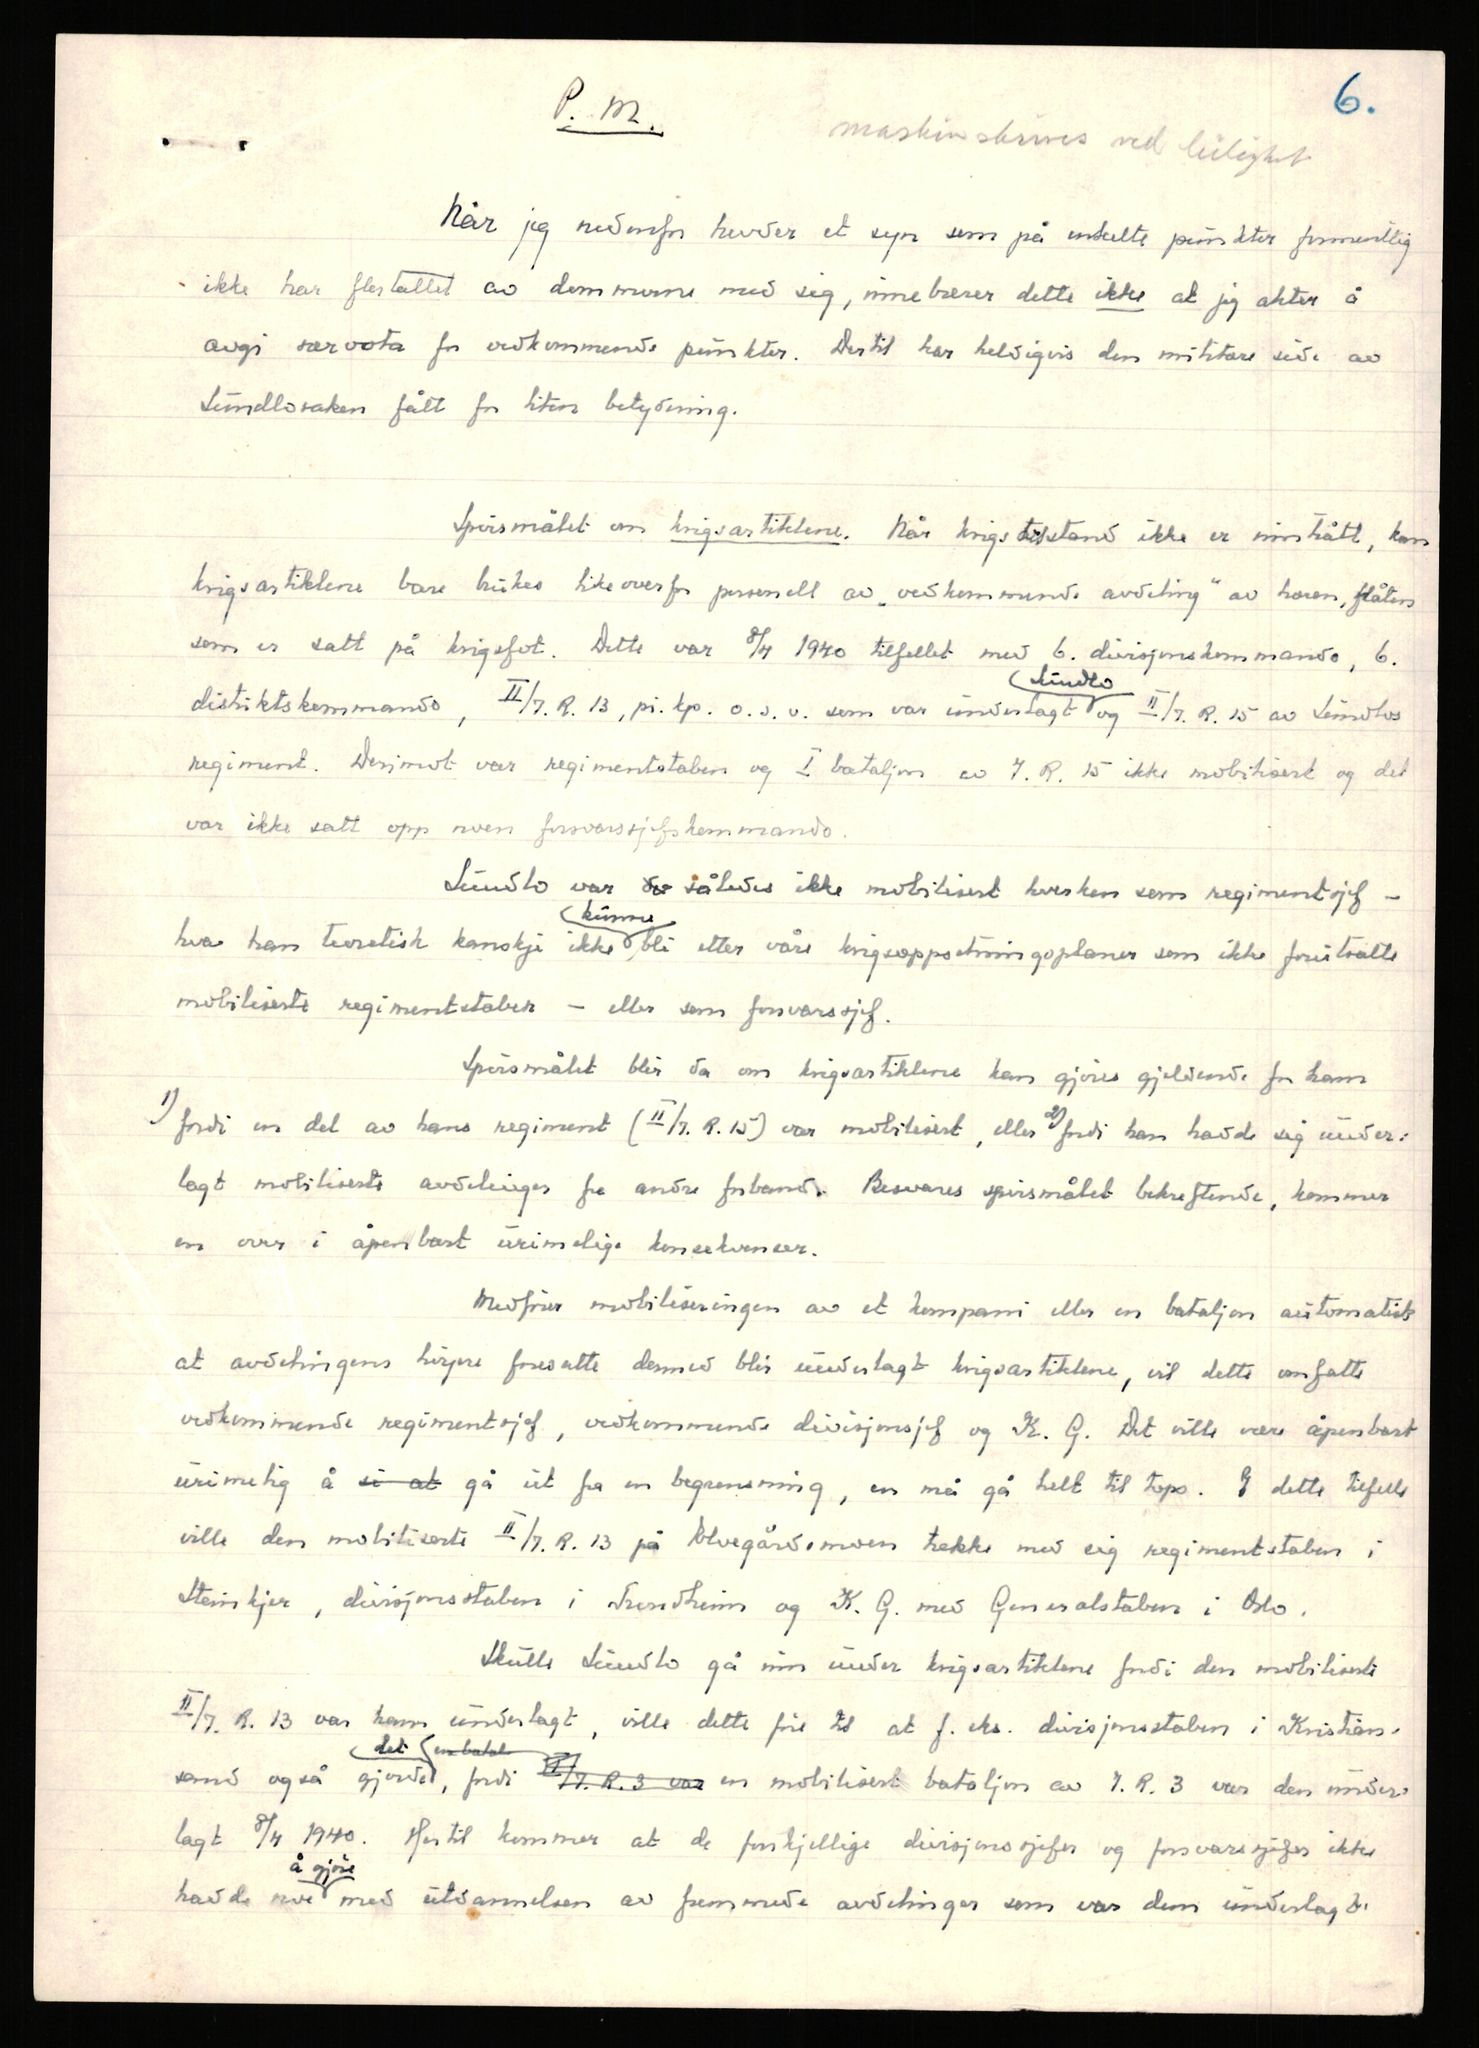 6.
P. M.
maskinskrives ved leilighet
Når jeg nedenfor hevder et syn som på enkelte punkter formentlig
ikke har flertallet av dommerne med sig, innebærer dette ikke at jeg akter å
avgi særvota for vedkommende punkter. Dertil har heldigvis den militære side av
Sundlosaken fått for liten betydning.
Spörsmålet om krigsartiklene. Når krigstilstand ikke er inntrått, kan
krigsartiklene bare brukes likeoverfor personell av „vedkommende avdeling" av hæren, flåten
som er satt på krigsfot. Dette var 8/4 1940 tilfellet med 6. divisjonskommando, 6.
distriktskommando, II/I.R. 13, pi. kp. o.s.v. som var underlagt Sundlo og II/I.R. 15 av Sundlos
regiment. Derimot var regimentstaben og I bataljon av I.R. 15 ikke mobilisert og det
var ikke satt opp noen forsvarssjefskommando.
Sundlo var således ikke mobilisert hverken som regimentsjef –
hva han teoretisk kanskje ikke kunne bli etter våre krigsoppsetningsplaner som ikke forutsatte
mobiliserte regimentstaber – eller som forsvarssjef.
Spörsmålet blir da om krigsartiklene kan gjöres gjeldende for ham
1) fordi en del av hans regiment (II/I.R. 15) var mobilisert, eller 2) fordi han hadde sig under-
lagt mobiliserte avdelinger fra andre forband. Besvares spörsmålet bekreftende, kommer
en over i åpenbart urimelige konsekvenser.
Medförer mobiliseringen av et kompani eller en bataljon automatisk
at avdelingens höiere foresatte dermed blir underlagt krigsartiklene, vil dette omfatte
vedkommende regimentsjef, vedkommende divisjonsjef og K. G. Det ville være åpenbart
urimelig å si at gå ut fra en begrensning, en må gå helt til tops. I dette tilfelle
ville den mobiliserte II/I.R. 13 på Elvegårdsmoen trekke med sig regimentstaben i
Steinkjer, divisjonsstaben i Trondheim og K. G. med Generalstaben i Oslo.
Skulle Sundlo gå inn under krigsartiklene fordi den mobiliserte
II/I.R. 13 var ham underlagt, ville dette före til at f. eks. divisjonsstaben i Kristian-
sand også gjorde det, fordi en batal. II/I.R. 3 var en mobilisert bataljon av I.R. 3 var den under-
lagt 8/4 1940. Hertil kommer at de forskjellige divisjonssjefer og forsvarssjefer ikke
hadde noe å gjöre med utdannelsen av fremmede avdelinger som var dem underlagt.